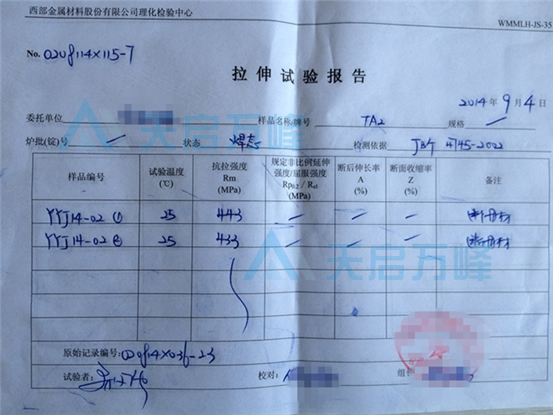 西部金属材料股份有限公司理化检验中心
WMMLH-JS-35
No. 0208114X115-7
拉伸试验报告
2014年9月4日
委托单位 样品名称/牌号 TA2 规格 /
炉批(锭)号 / 状态 焊态 检测依据 JB/T 4745-2002
样品编号 试验温度(℃) 抗拉强度Rm(MPa) 规定非比例延伸强度/屈服强度Rp0.2 / ReL(MPa) 断后伸长率A(%) 断面收缩率Z(%) 备注
YYJ14-02 ① 25 443 / / / 断母材
YYJ14-02 ② 25 433 / / / 断母材
原始记录编号:
试验者: 校对: 组长
天启万峰
天启万峰